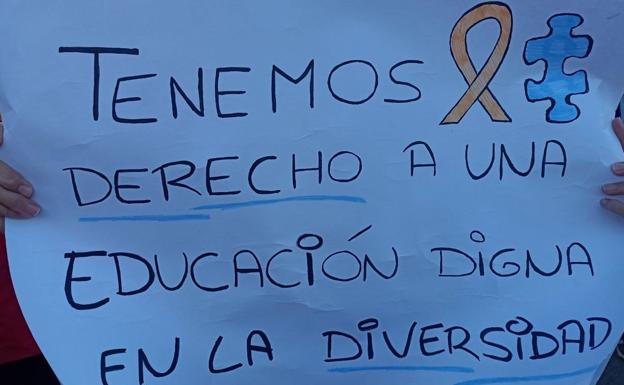 TENEMOS
DERECHO A UNA
EDUCACIÓN DIGNA
EN LA DIVERSIDAD